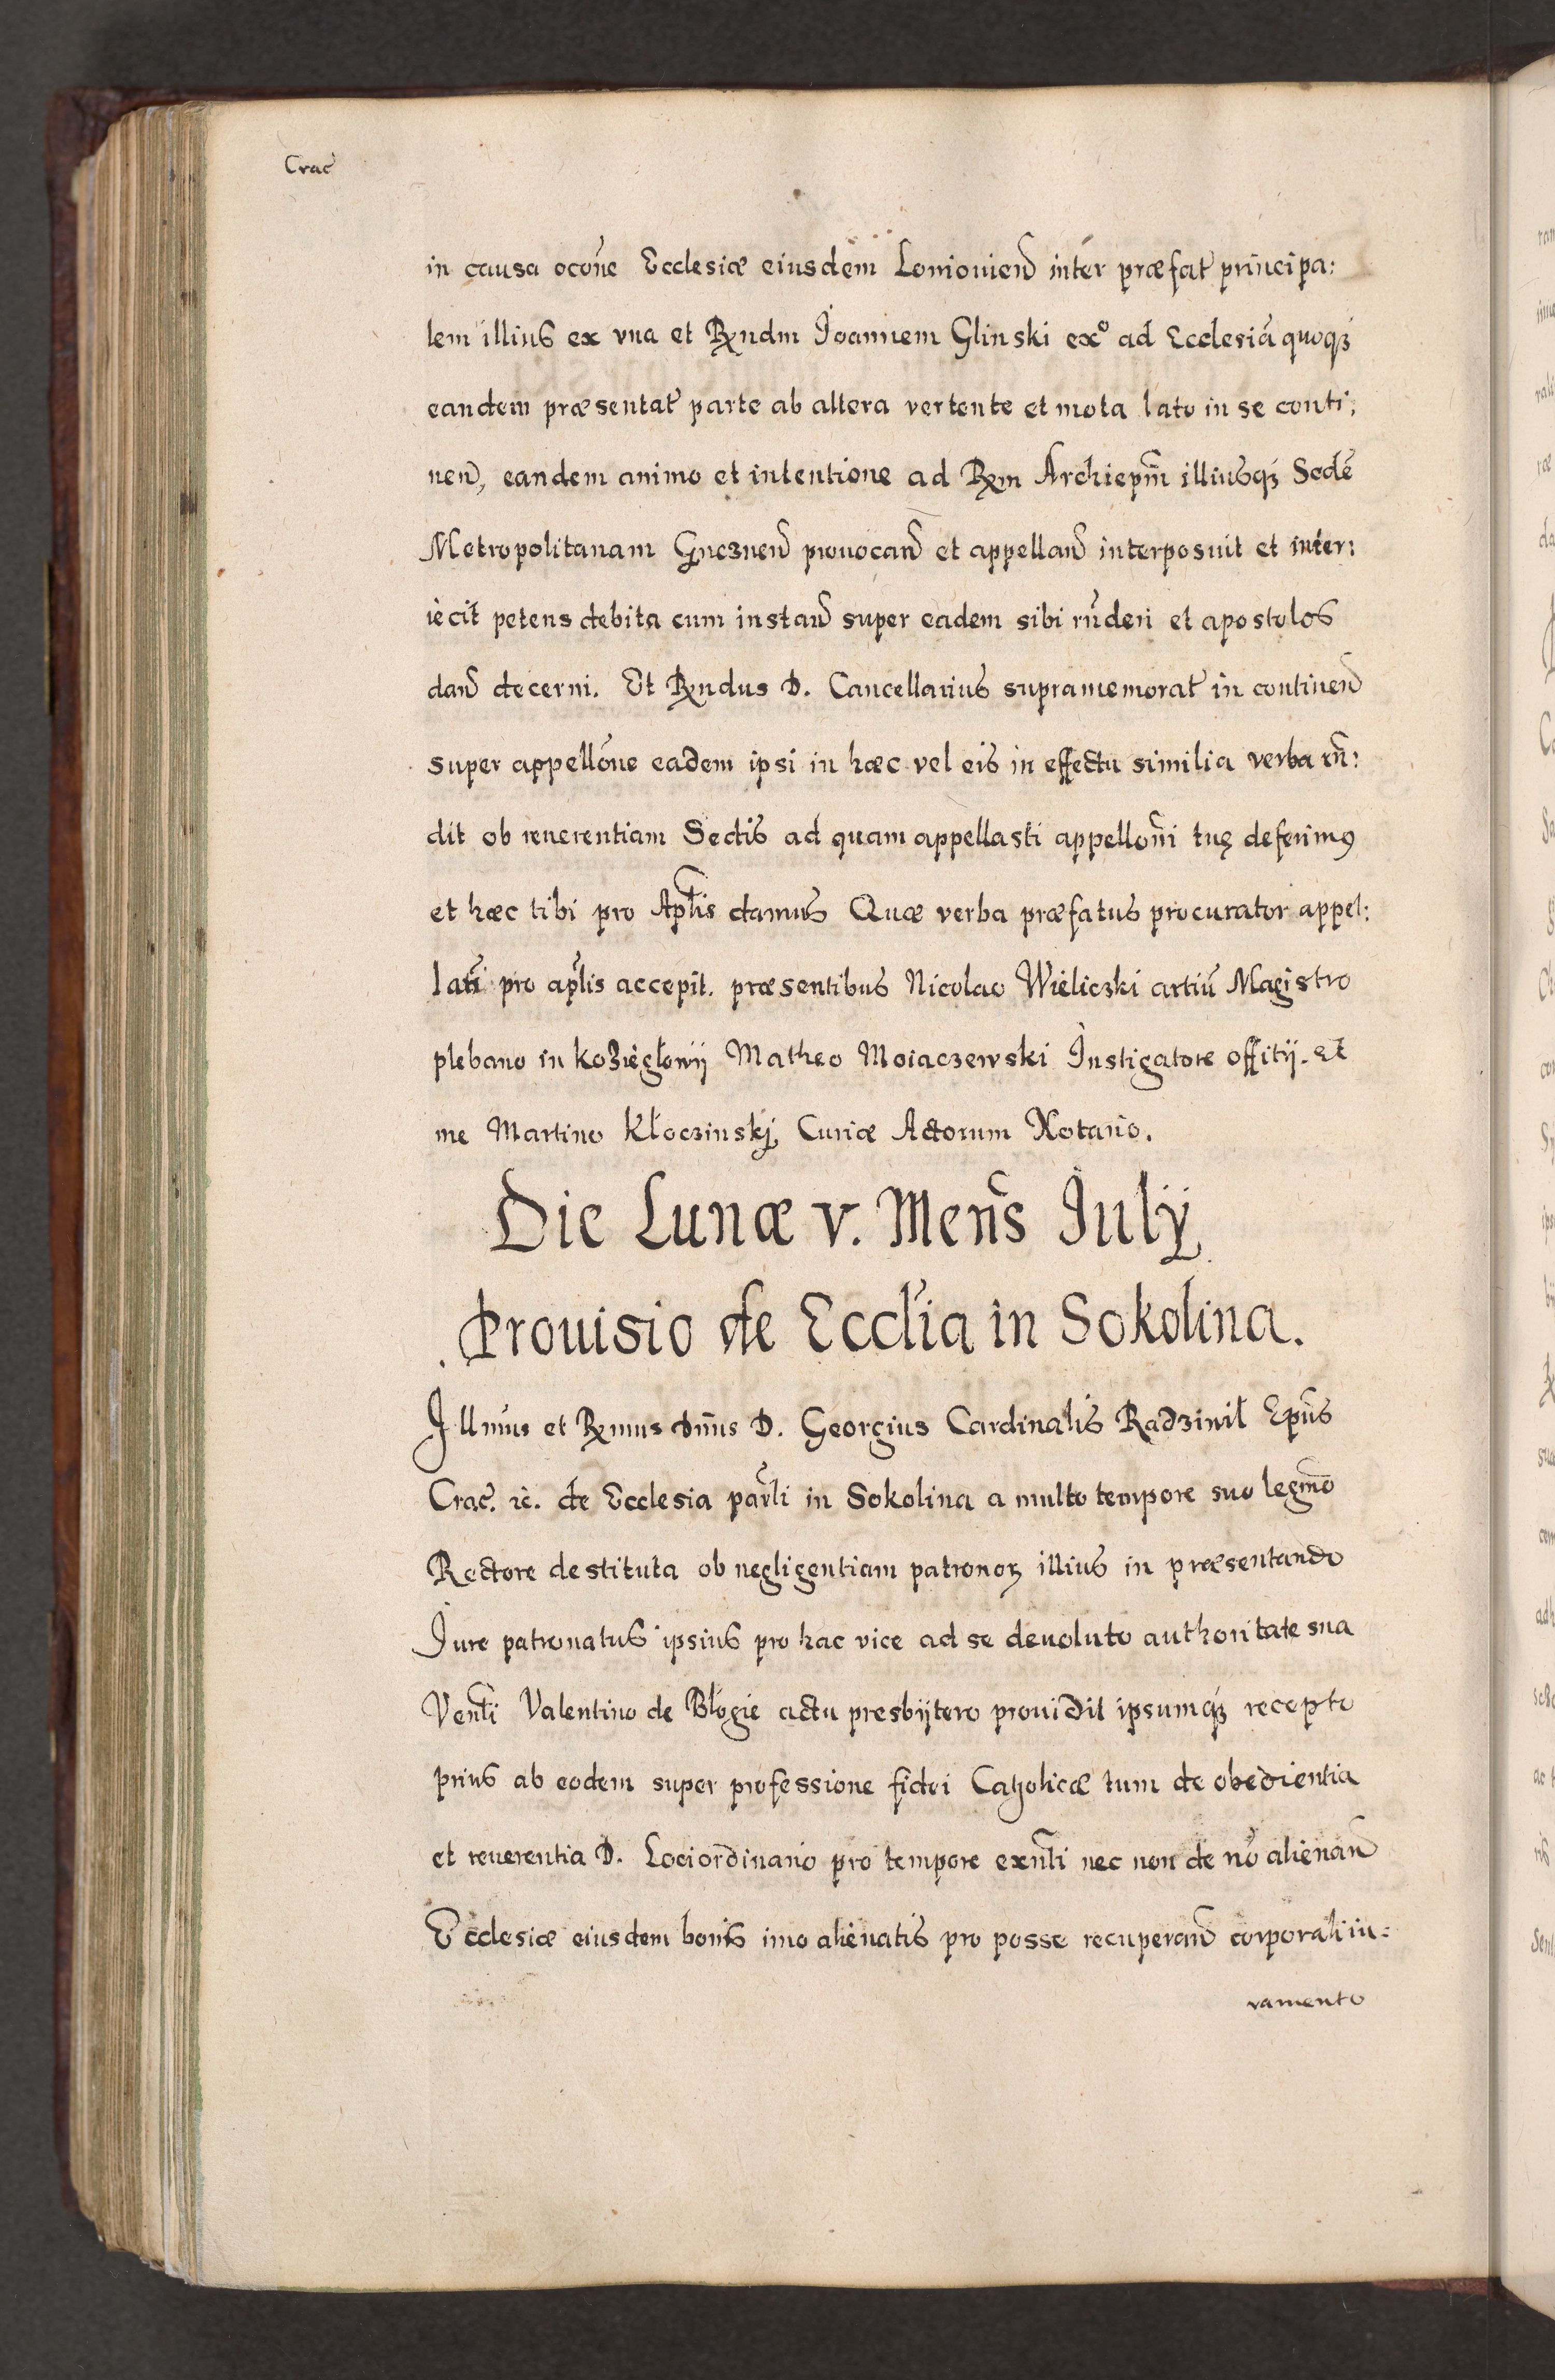 Crac̃
in causa occõne Ecclesiæ eiusdem Loniouien̄ inter præfat̃ principa:
lem illius ex vna et Rn̄dm Ioannem Glinski exº ad Ecclesiã quoqȝ
eandem præsentat̃ parte ab altera vertente et mota lato in se conti:
nen̄, eandem animo et intentione ad Rm̄ Archiepm̃ illiusqȝ Sedẽ
Metropolitanam Gnesnen̄ prouocan̄ et appellan̄ interposuit et inter:
iecit petens debita cum instan̄ super eadem sibi rñderi et apostolos
dan̄ decerni. Et Rn̄dus D. Cancellarius supramemorat̃ in continen̄
super appellõne eadem ipsi in hæc vel eis in effectu similia verba rñ:
dit ob reuerentiam Sedis ad quam appellasti appelloñi tuę deferimꝰ
et hæc tibi pro Aplĩs damus Quæ verba præfatus procurator appel:
latĩ pro aplĩs accepit. præsentibus Nicolao Wieliczki artiũ Magistro
plebano in Koziegłowÿ Matheo Moiaczewski Instigatore offitÿ. Et
me Martino Kłoczinskj Curiæ Actorum Notario.
Die Lunæ v. Meñs Iulÿ
Prouisio de Ecclĩa in Sokolina.
Illm̃us et Rm̄us Dñus D. Georgius Cardinalis Radziwił Epũs
Crac̃. ꝛc̃. de Ecclesia parĩli in Sokolina a multo tempore suo legm̃o
Rectore destituta ob negligentiam patronoꝝ illius in præsentando
Iure patronatus ipsius pro hac vice ad se deuoluto authoritate sua
Venl̃i Valentino de Błogie actu presbÿtero prouidit ipsumqȝ recepto
prius ab eodem super professione fidei Catholicæ tum de obedientia
et reuerentia D. Lociordinario pro tempore exñti nec non de nõ alienan̄
Ecclesiæ eiusdem bonis imo alienatis pro posse recuperan̄ corporali iu:
ramento